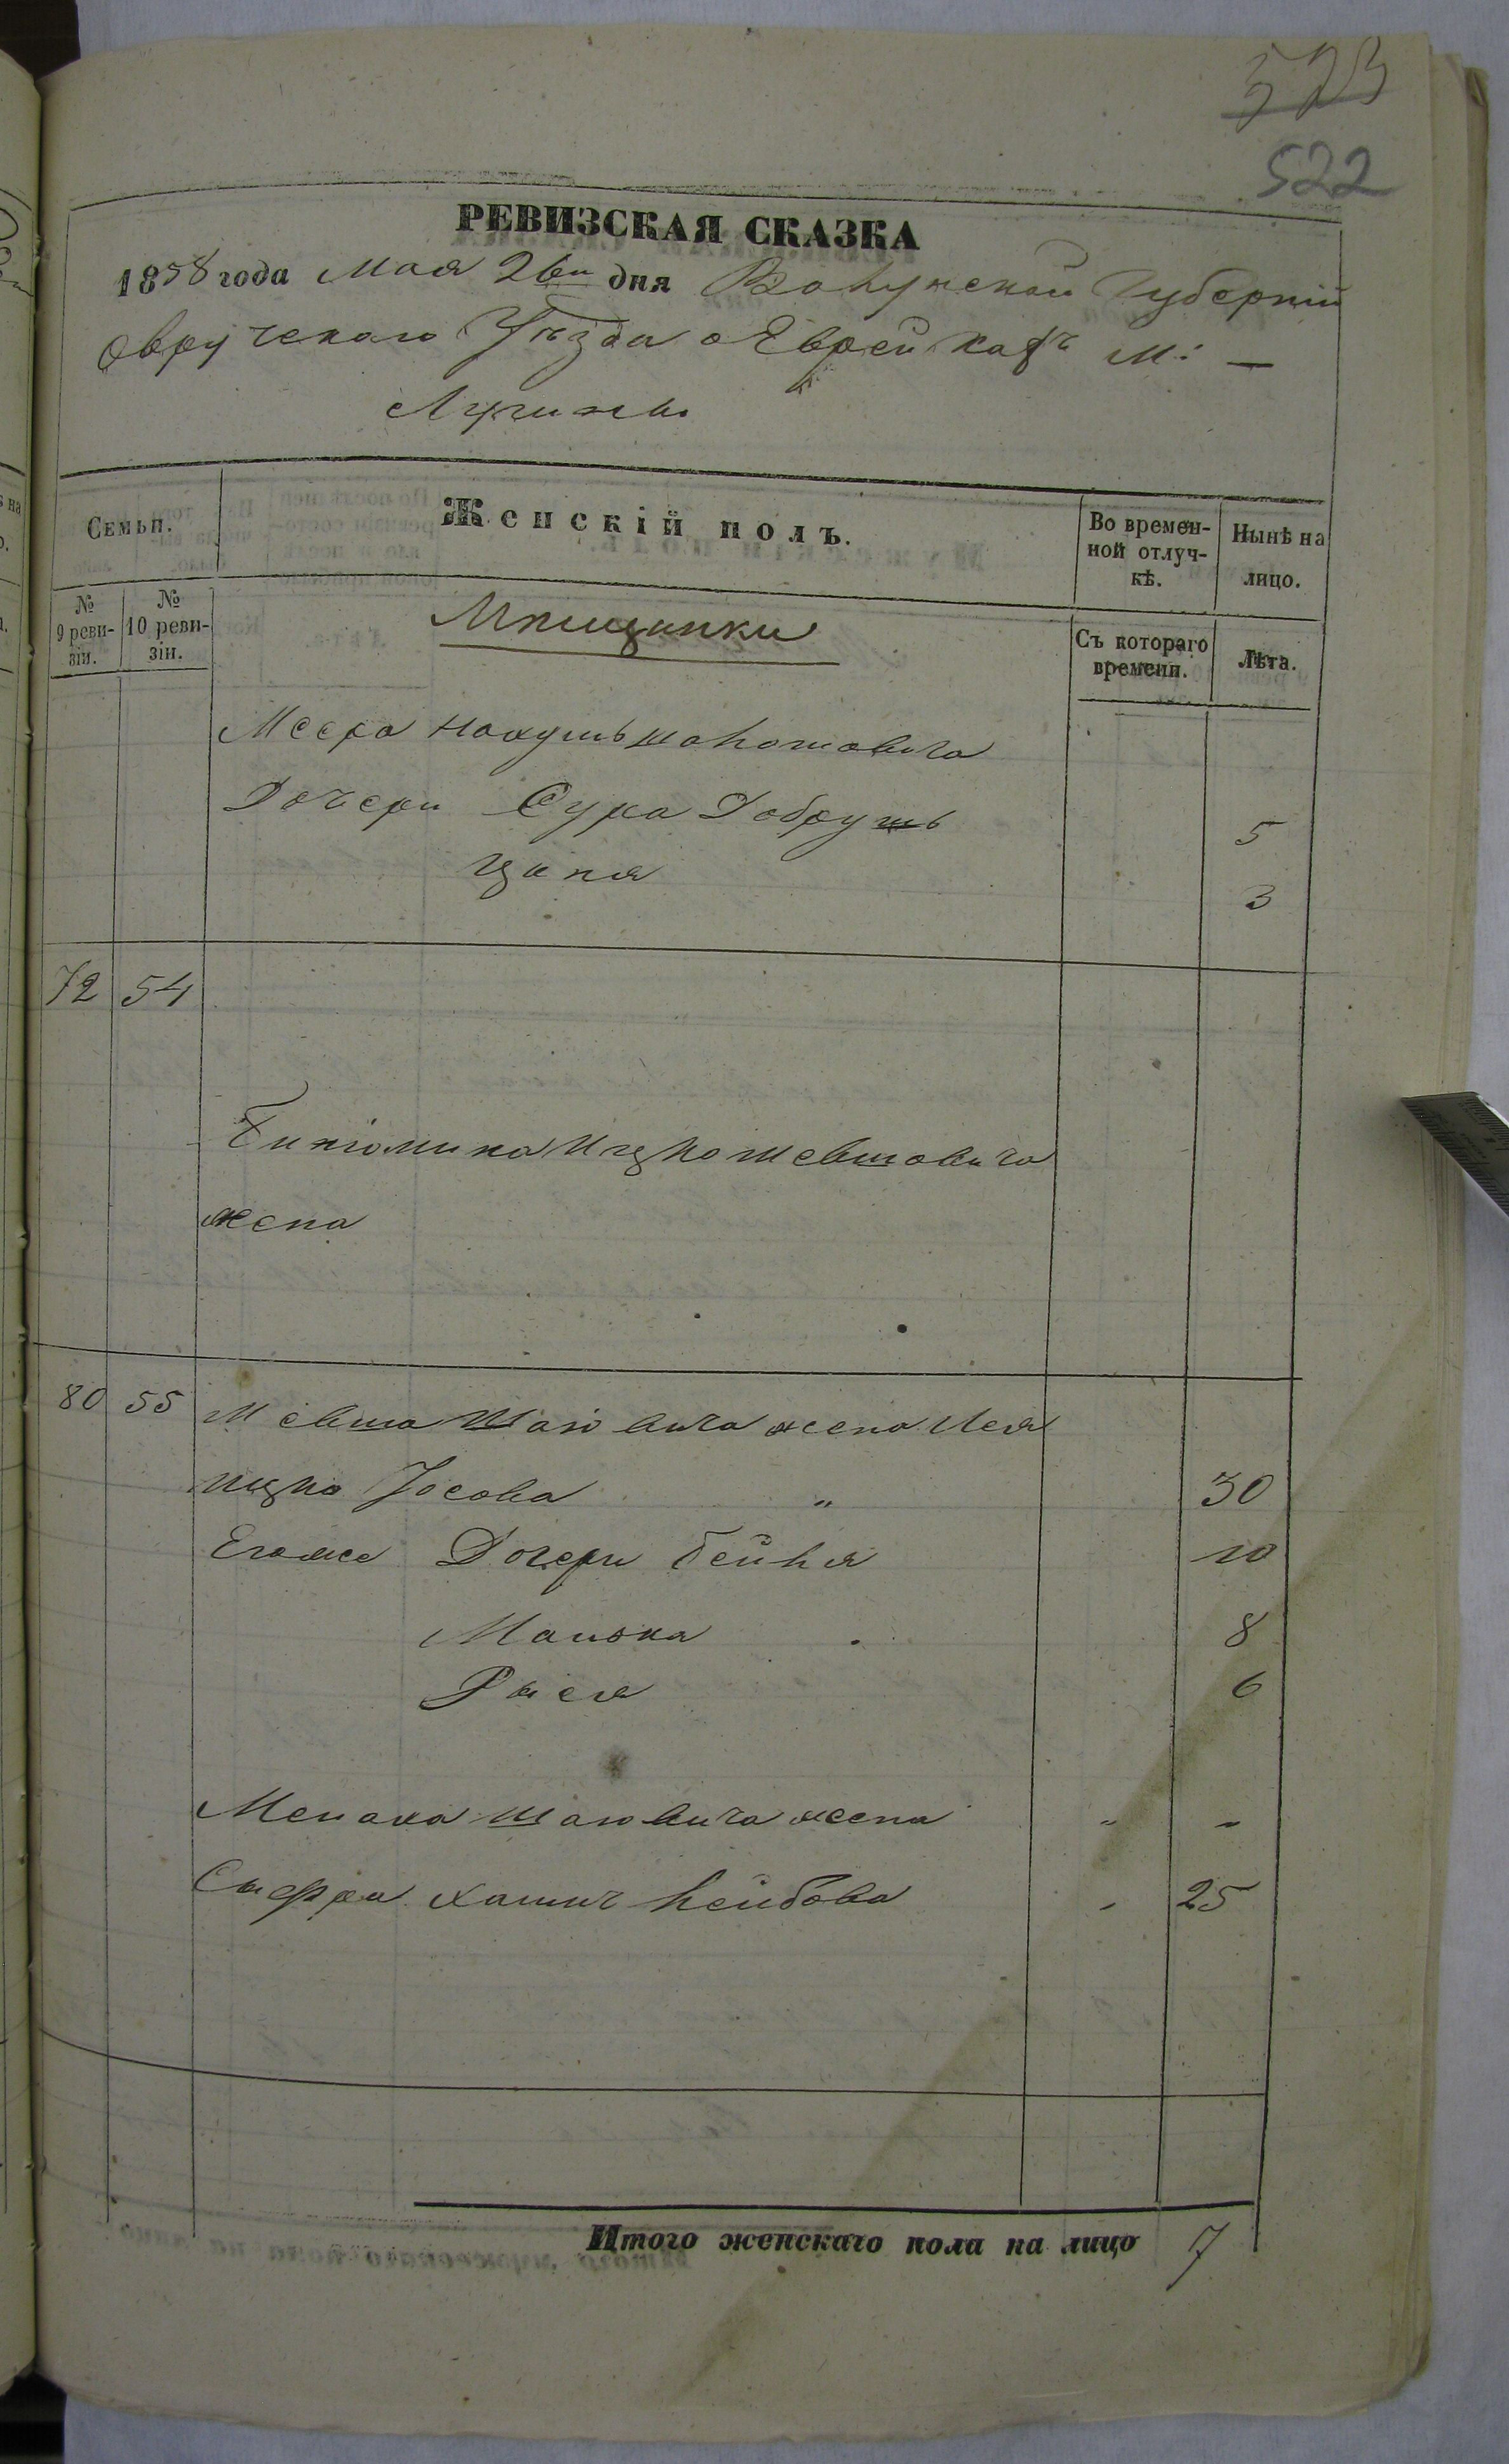 523
522
РЕВИЗСКАЯ СКАЗКА
1858 года Мая 26го дня Волынской Губерніи
Овручскаго Уѣзда о Еврейкахъ М: —
Лугины
Семьи.
Женскій полъ.
Во времен-
ной отлуч-
кѣ.
Нынѣ на
лицо.
№
9 реви-
зіи.
№
10 реви-
зіи.
Мѣщанки
Съ котораго
времени.
Лѣта.
Меера Нахумъ Шахомовича
Дочери Сура Добрушъ 5
Ципя 3
72 54
Биніомина Ицко Мевшовича
жена
80 55 Мевша Шаювича жена Лея
Ицко Іосова „ 30
Егоже Дочери Бейля 10
Манька 8
Рыся 6
Менаха Шаювича жена „ „
Сыфра Хаимъ Лейбова „ 25
Итого женскаго пола на лицо 7